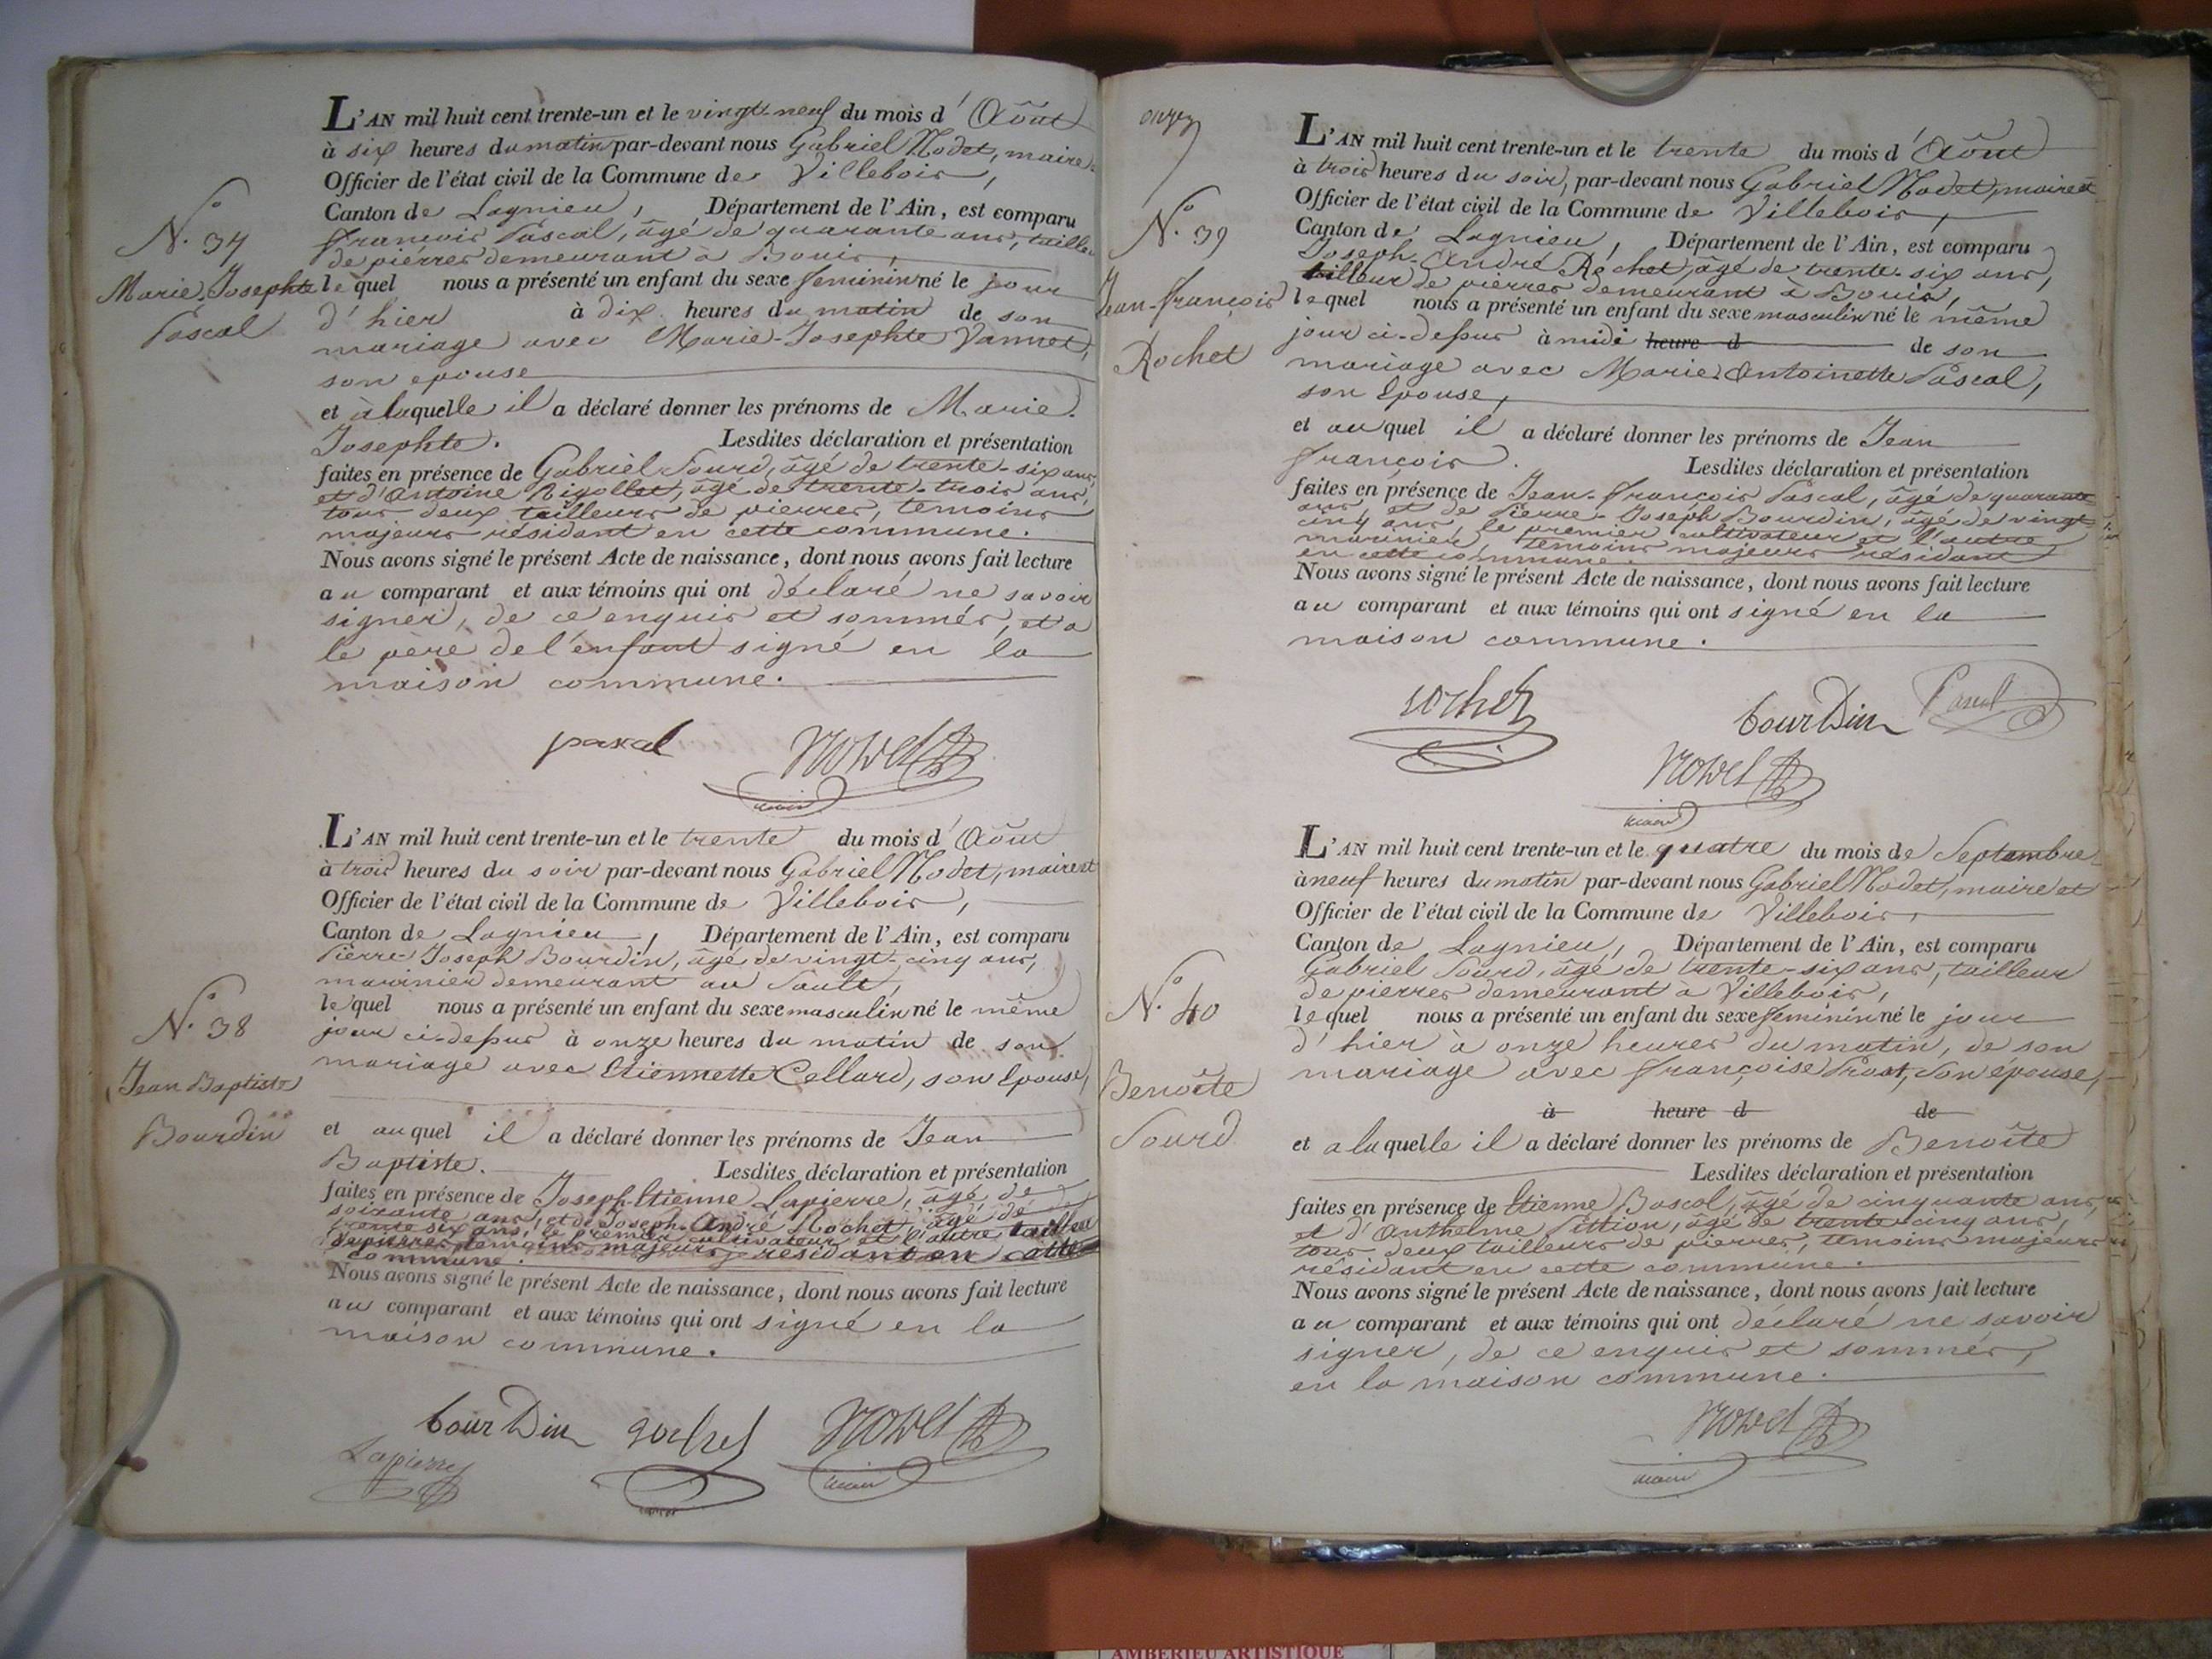 L'AN mil huit cent trente-un et le vingt-neuf du mois d'Août
à six heures du matin par-devant nous Gabriel Nodet, maire
Officier de l'état civil de la Commune de Villebois,
Canton de Lagnieu, Département de l'Ain, est comparu
françois Pascal, âgé de quarante ans, tailleur
de pierres demeurant à Bouis,
N.º 37
Marie-Josephte
Pascal
lequel nous a présenté un enfant du sexe feminin né le jour
d'hier à dix heures du matin de son
mariage avec Marie-Josephte Vannet,
son epouse
et à laquelle il a déclaré donner les prénoms de Marie
Josephte. Lesdites déclaration et présentation
faites en présence de Gabriel Sourd, âgé de trente-six ans,
et d'Antoine Rigollet, âgé de trente-trois ans,
tous deux tailleurs de pierres, temoins
majeurs résidant en cette commune.
Nous avons signé le présent Acte de naissance, dont nous avons fait lecture
au comparant et aux témoins qui ont déclaré ne savoir
signer, de ce enquis et sommés, et a
le père de l'enfant signé en la
maison commune.
pascal Nodet
maire
L'AN mil huit cent trente-un et le trente du mois d'Août
à trois heures du soir par-devant nous Gabriel Nodet, maire et
Officier de l'état civil de la Commune de Villebois,
Canton de Lagnieu, Département de l'Ain, est comparu
Pierre-Joseph Bourdin, âgé de vingt-cinq ans,
marinier demeurant au Sault,
N.º 38
Jean Baptiste
Bourdin
lequel nous a présenté un enfant du sexe masculin né le même
jour ci-dessus à onze heures du matin de son
mariage avec Etiennette Cellard, son Epouse,
et auquel il a déclaré donner les prénoms de Jean
Baptiste. Lesdites déclaration et présentation
faites en présence de Joseph-Etienne Lapierre, âgé de
soixante ans, et de Joseph-André Rochet, âgé de
trente six ans, le premier cultivateur et l'autre tailleur
de pierres, temoins majeurs résidant en cette
commune.
Nous avons signé le présent Acte de naissance, dont nous avons fait lecture
au comparant et aux témoins qui ont signé en la
maison commune.
bourDin rochet Nodet
Lapierre maire
onze
L'AN mil huit cent trente-un et le trente du mois d'Août
à trois heures du soir, par-devant nous Gabriel Nodet, maire et
Officier de l'état civil de la Commune de Villebois,
Canton de Lagnieu, Département de l'Ain, est comparu
Joseph-André Rochet, âgé de trente-six ans,
tailleur de pierres demeurant à Bouis,
N.º 39
Jean-françois
Rochet
lequel nous a présenté un enfant du sexe masculin né le même
jour ci-dessus à midi heure d de son
mariage avec Marie Antoinette Pascal,
son Epouse,
et auquel il a déclaré donner les prénoms de Jean
françois. Lesdites déclaration et présentation
faites en présence de Jean-françois Pascal, âgé de quarante
ans, et de Pierre-Joseph Bourdin, âgé de vingt
cinq ans, le premier cultivateur et l'autre
marinier, temoins majeurs résidant
en cette commune.
Nous avons signé le présent Acte de naissance, dont nous avons fait lecture
au comparant et aux témoins qui ont signé en la
maison commune.
rochet bourDin Pascal
Nodet
maire
L'AN mil huit cent trente-un et le quatre du mois de Septembre
à neuf heures du matin par-devant nous Gabriel Nodet, maire et
Officier de l'état civil de la Commune de Villebois,
Canton de Lagnieu, Département de l'Ain, est comparu
Gabriel Sourd, âgé de trente-six ans, tailleur
de pierres demeurant à Villebois,
N.º 40
Benoîte
Sourd
lequel nous a présenté un enfant du sexe feminin né le jour
d'hier à onze heures du matin, de son
mariage avec françoise Prost, son épouse,
à heure d de
et a laquelle il a déclaré donner les prénoms de Benoîte
Lesdites déclaration et présentation
faites en présence de Etienne Bascol, âgé de cinquante ans,
et d'Anthelme Pittion, âgé de trente-cinq ans,
tous deux tailleurs de pierres, temoins majeurs
résidant en cette commune.
Nous avons signé le présent Acte de naissance, dont nous avons fait lecture
au comparant et aux témoins qui ont déclaré ne savoir
signer, de ce enquis et sommés,
en la maison commune.
Nodet
maire
AMBERIEU ARTISTIQUE